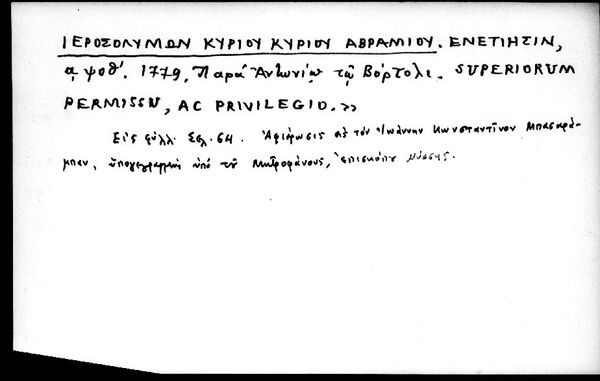 ΙΕΡΟΣΟΛΥΜΩΝ ΚΥΡΙΟΥ ΚΥΡΙΟΥ ΑΒΡΑΜΙΟΥ. ΕΝΕΤΙΗΣΙΝ,
ᾳψοθ'. 1779, Παρὰ Ἀντωνίῳ τῷ Βόρτολι. SUPERIORUM
PERMISSU, AC PRIVILEGIO.»
Εἰς φύλλ. Σελ. 64. Ἀφιέρωσις εἰς τὸν Ἰωάννην Κωνσταντῖνον Μπασαρά-
μπαν, ὑπογεγραμμένη ὑπὸ τοῦ Μητροφάνους, Ἐπισκόπου Νύσσης.